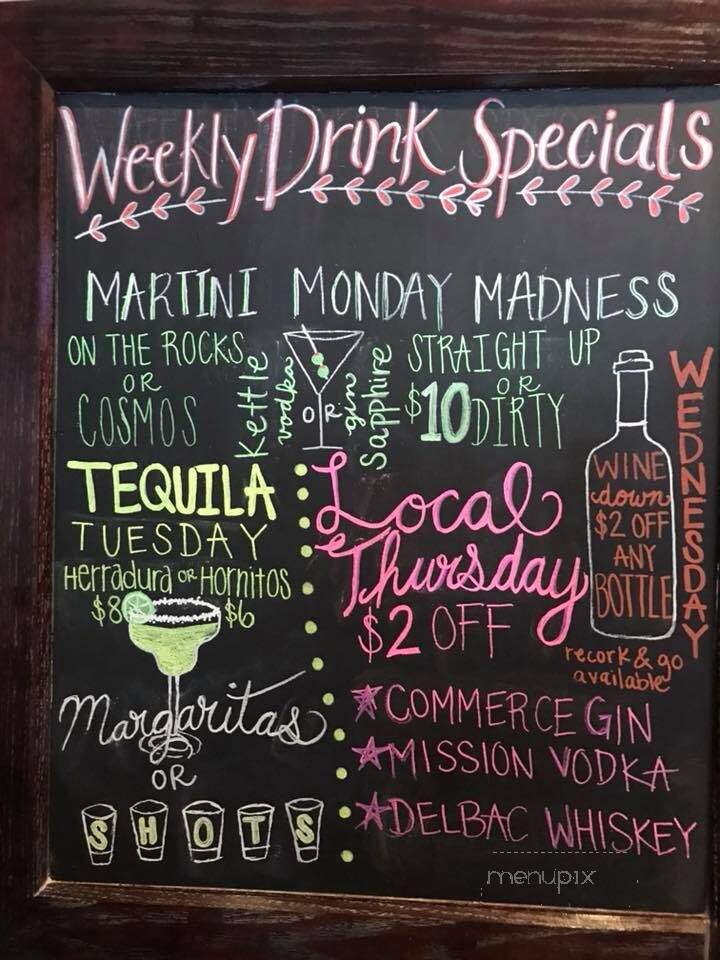 Weekly Drink Specials
MARTINI MONDAY MADNESS
ON THE ROCKS
OR
COSMOS
Kettle
vodka
OR
gin
Sapphire
STRAIGHT UP
OR
$10 DIRTY
WEDNESDAY
WINE
down
$2 OFF
ANY
BOTTLE
recork & go
available
TEQUILA
TUESDAY
Herradura OR Hornitos
$8 $6
Margaritas
OR
SHOTS
Local
Thursday
$2 OFF
COMMERCE GIN
MISSION VODKA
DELBAC WHISKEY
menupix